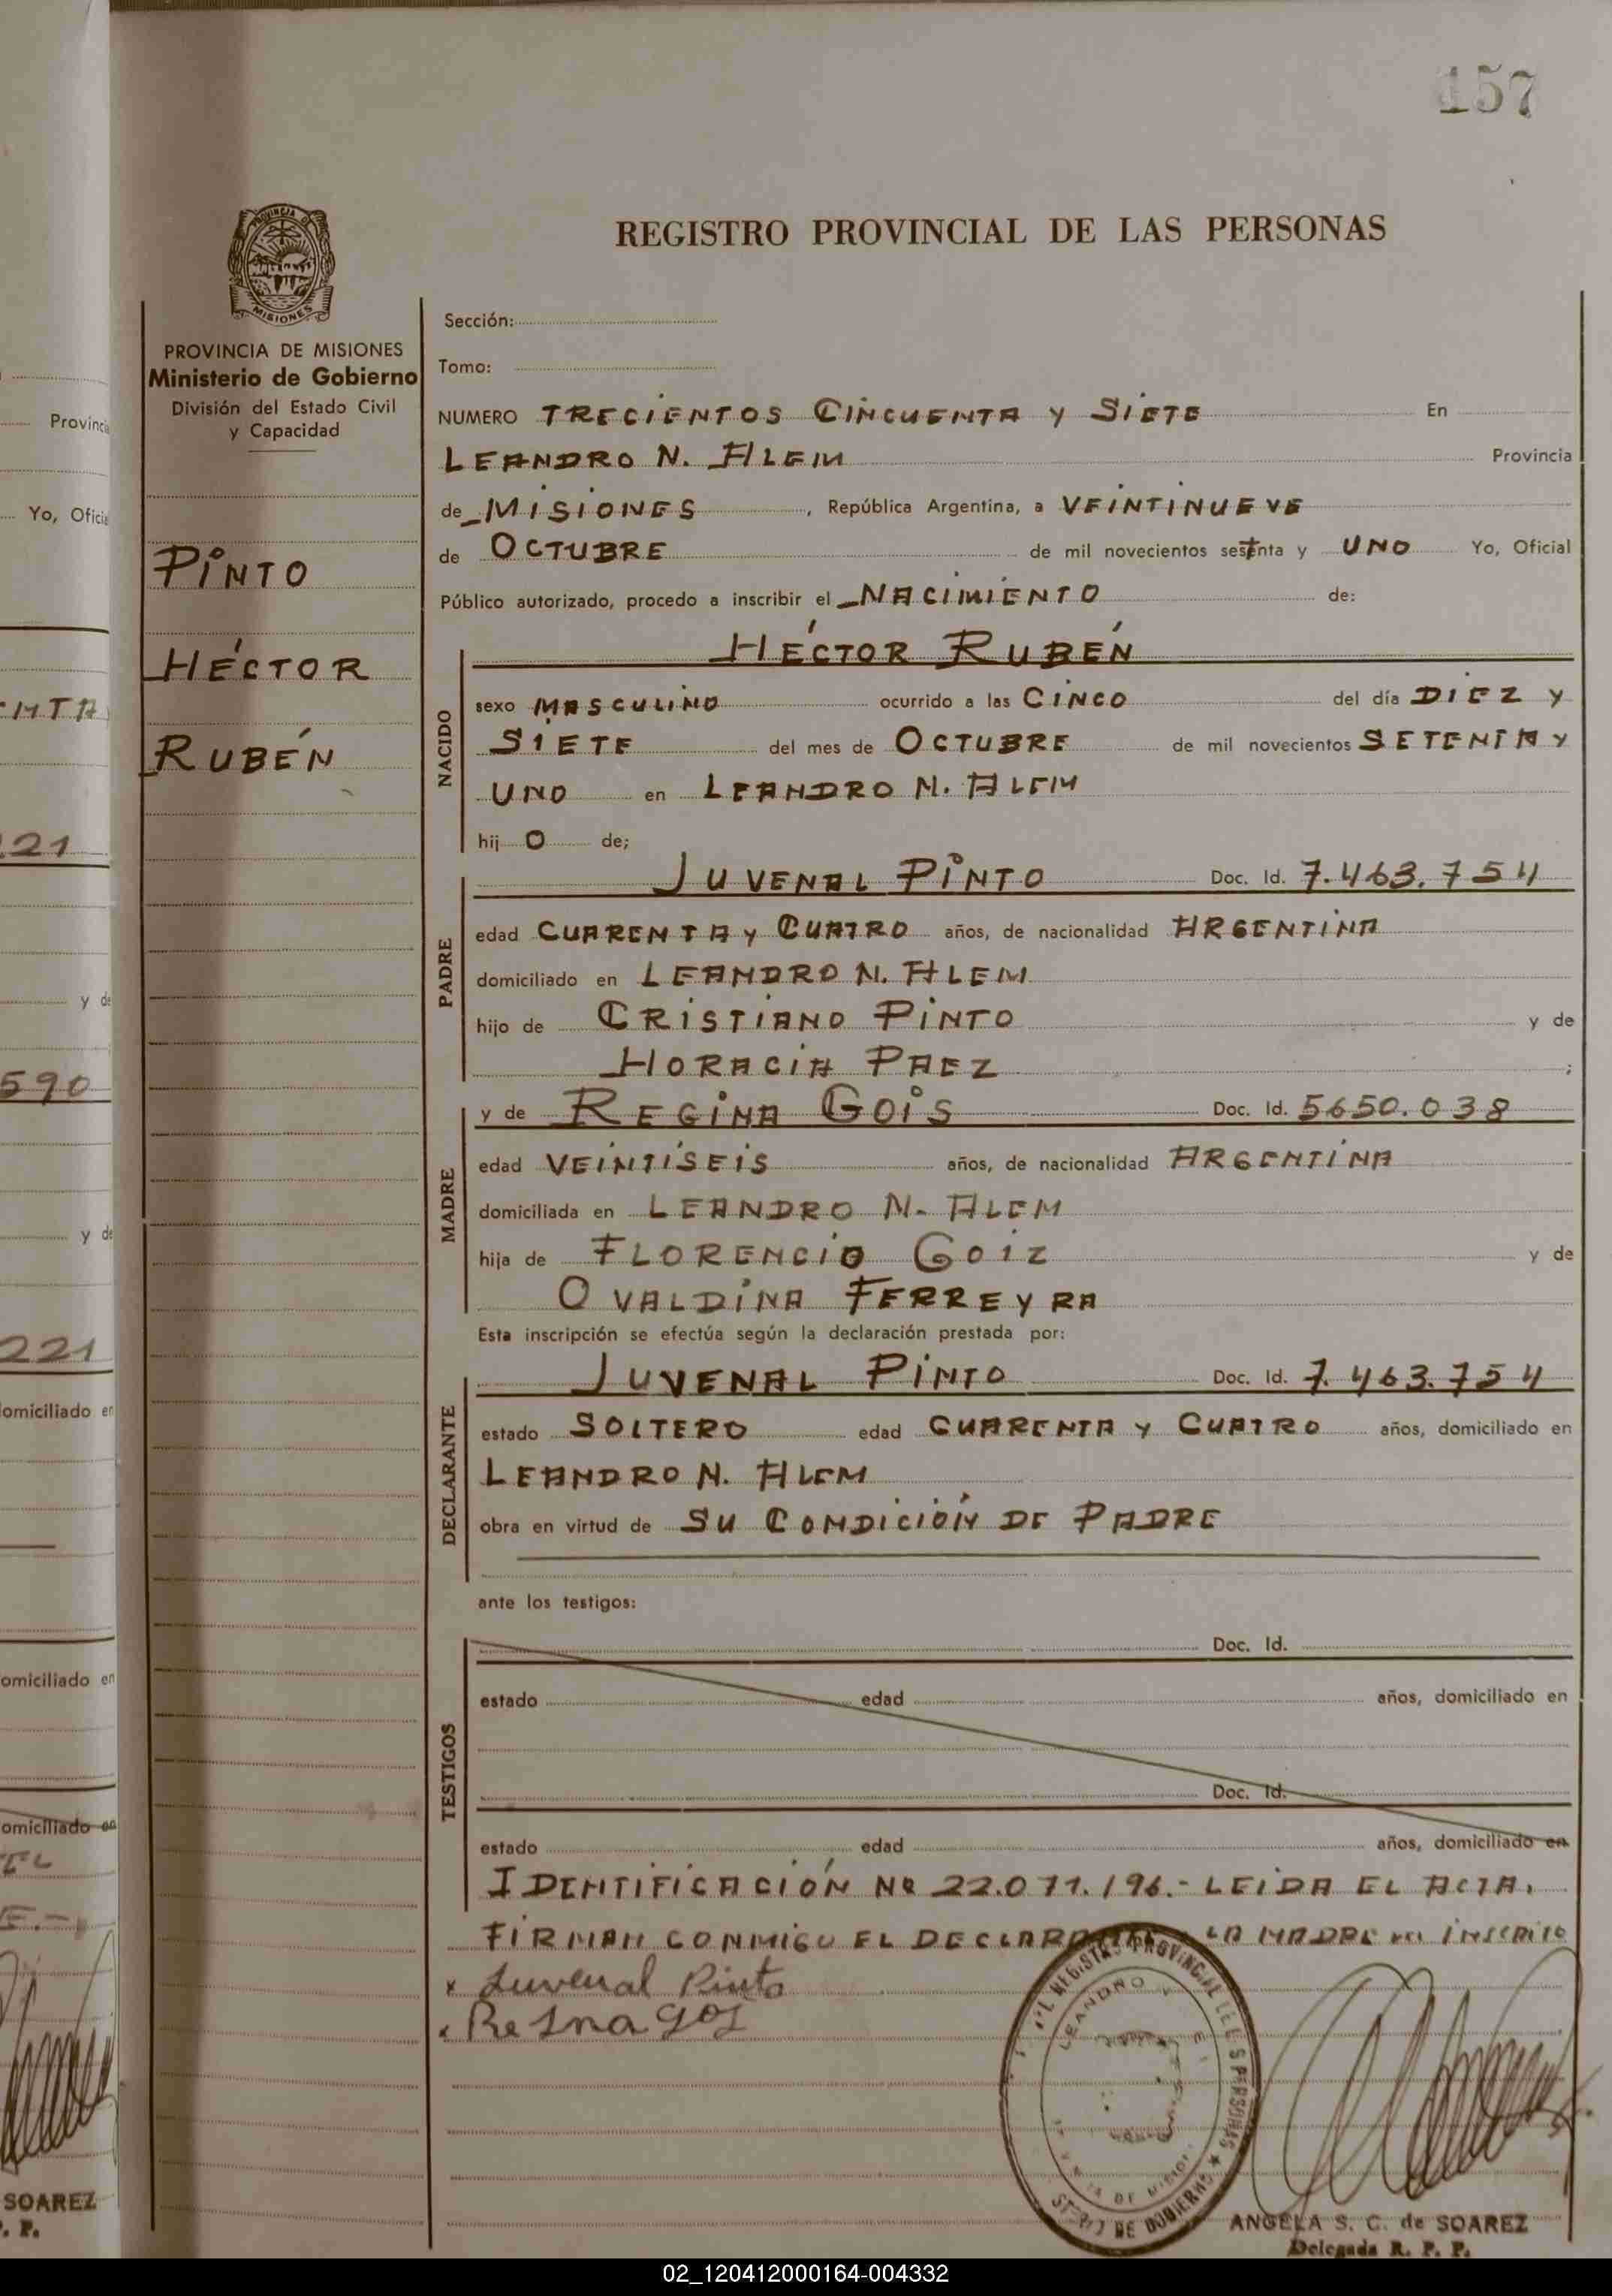 157
PROVINCIA DE
MISIONES
REGISTRO PROVINCIAL DE LAS PERSONAS
PROVINCIA DE MISIONES
Ministerio de Gobierno
División del Estado Civil
y Capacidad
PINTO
HÉCTOR
RUBÉN
Sección:
Tomo:
NUMERO TRECIENTOS CINCUENTA Y SIETE En
LEANDRO N. ALEM Provincia
de MISIONES, República Argentina, a VEINTINUEVE
de OCTUBRE de mil novecientos setenta y UNO Yo, Oficial
Público autorizado, procedo a inscribir el NACIMIENTO de:
HÉCTOR RUBÉN
NACIDO
sexo MASCULINO ocurrido a las CINCO del día DIEZ Y
SIETE del mes de OCTUBRE de mil novecientos SETENTA Y
UNO en LEANDRO N. ALEM
hij O de;
JUVENAL PINTO Doc. Id. 7.463.754
PADRE
edad CUARENTA Y CUATRO años, de nacionalidad ARGENTINA
domiciliado en LEANDRO N. ALEM
hijo de CRISTIANO PINTO y de
HORACIA PAEZ ;
y de REGINA GOIS Doc. Id. 5650.038
MADRE
edad VEINTISEIS años, de nacionalidad ARGENTINA
domiciliada en LEANDRO N. ALEM
hija de FLORENCIO GOIZ y de
OVALDINA FERREYRA
Esta inscripción se efectúa según la declaración prestada por:
JUVENAL PINTO Doc. Id. 7.463.754
DECLARANTE
estado SOLTERO edad CUARENTA Y CUATRO años, domiciliado en
LEANDRO N. ALEM
obra en virtud de SU CONDICIÓN DE PADRE
ante los testigos:
Doc. Id.
TESTIGOS
estado edad años, domiciliado en
Doc. Id.
estado edad años, domiciliado en
IDENTIFICACIÓN Nº 22.071.196.- LEIDA EL ACTA,
FIRMAN CONMIGO EL DECLARANTE LA MADRE INSCRITO
x Juvenal Pinto
ANGELA S. C. de SOAREZ
Delegada R. P. P.
Provincia
Yo, Oficia
221
y de
590
y de
221
domiciliado en
domiciliado en
domiciliado en
SOAREZ
P. P.
02_120412000164-004332